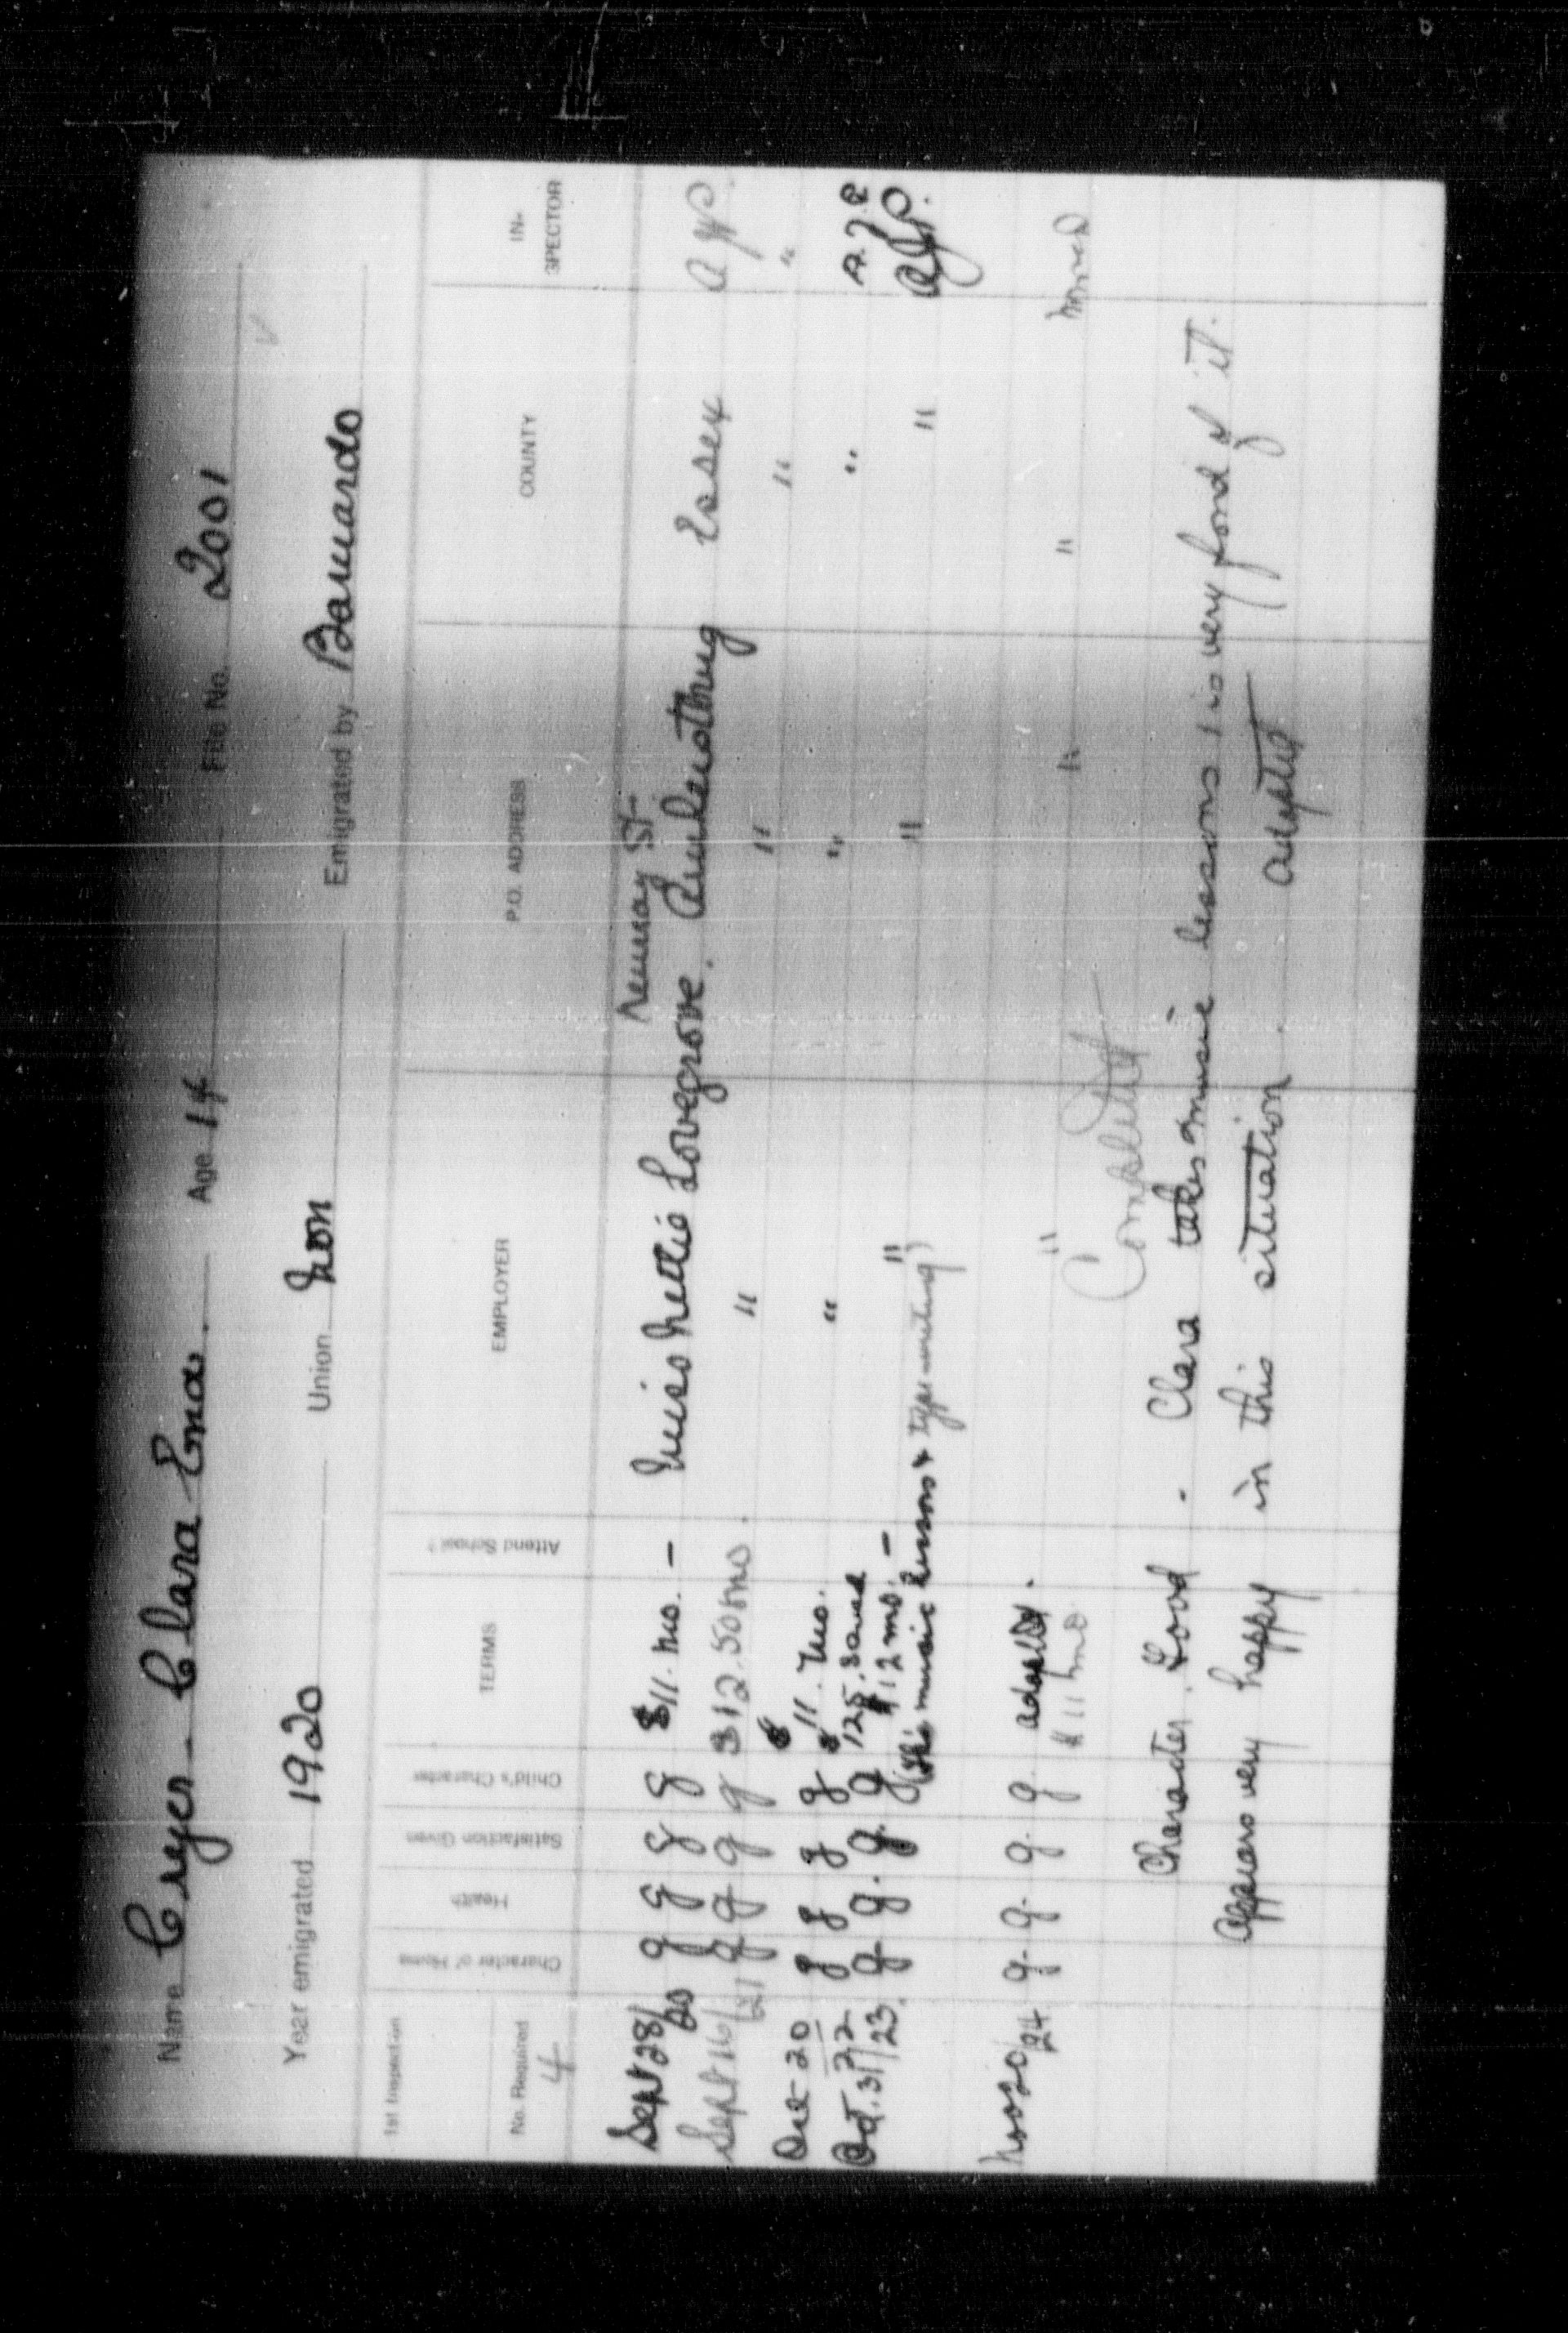 Name Cryer - Clara Ena. Age 14 File No. 2001
Year emigrated 1920 Union Non Emigrated by Barnardo
1st Inspection
No. Required 4 Character of Home Health Satisfaction Given Child's Character TERMS Attend School? EMPLOYER P.O. ADDRESS COUNTY IN-SPECTOR
Ramsay St
Sept 28/20 g g g g $11. mo. — Miss Nettie Lovegrove. Amherstburg Essex
Sept 16/21 g g g g $12.50 mo. " " "
20 22 g g g g $11. mo. " " "
$125. Saved
Oct. 31/23. g g. g. g $12 mo. — " " "
music lessons & typewriting)
24 g. g. g. g adopted.
$11 mo " " "
Completed
Character Good - Clara takes music lessons & is very fond of it.
Appears very happy in this situation. adopted